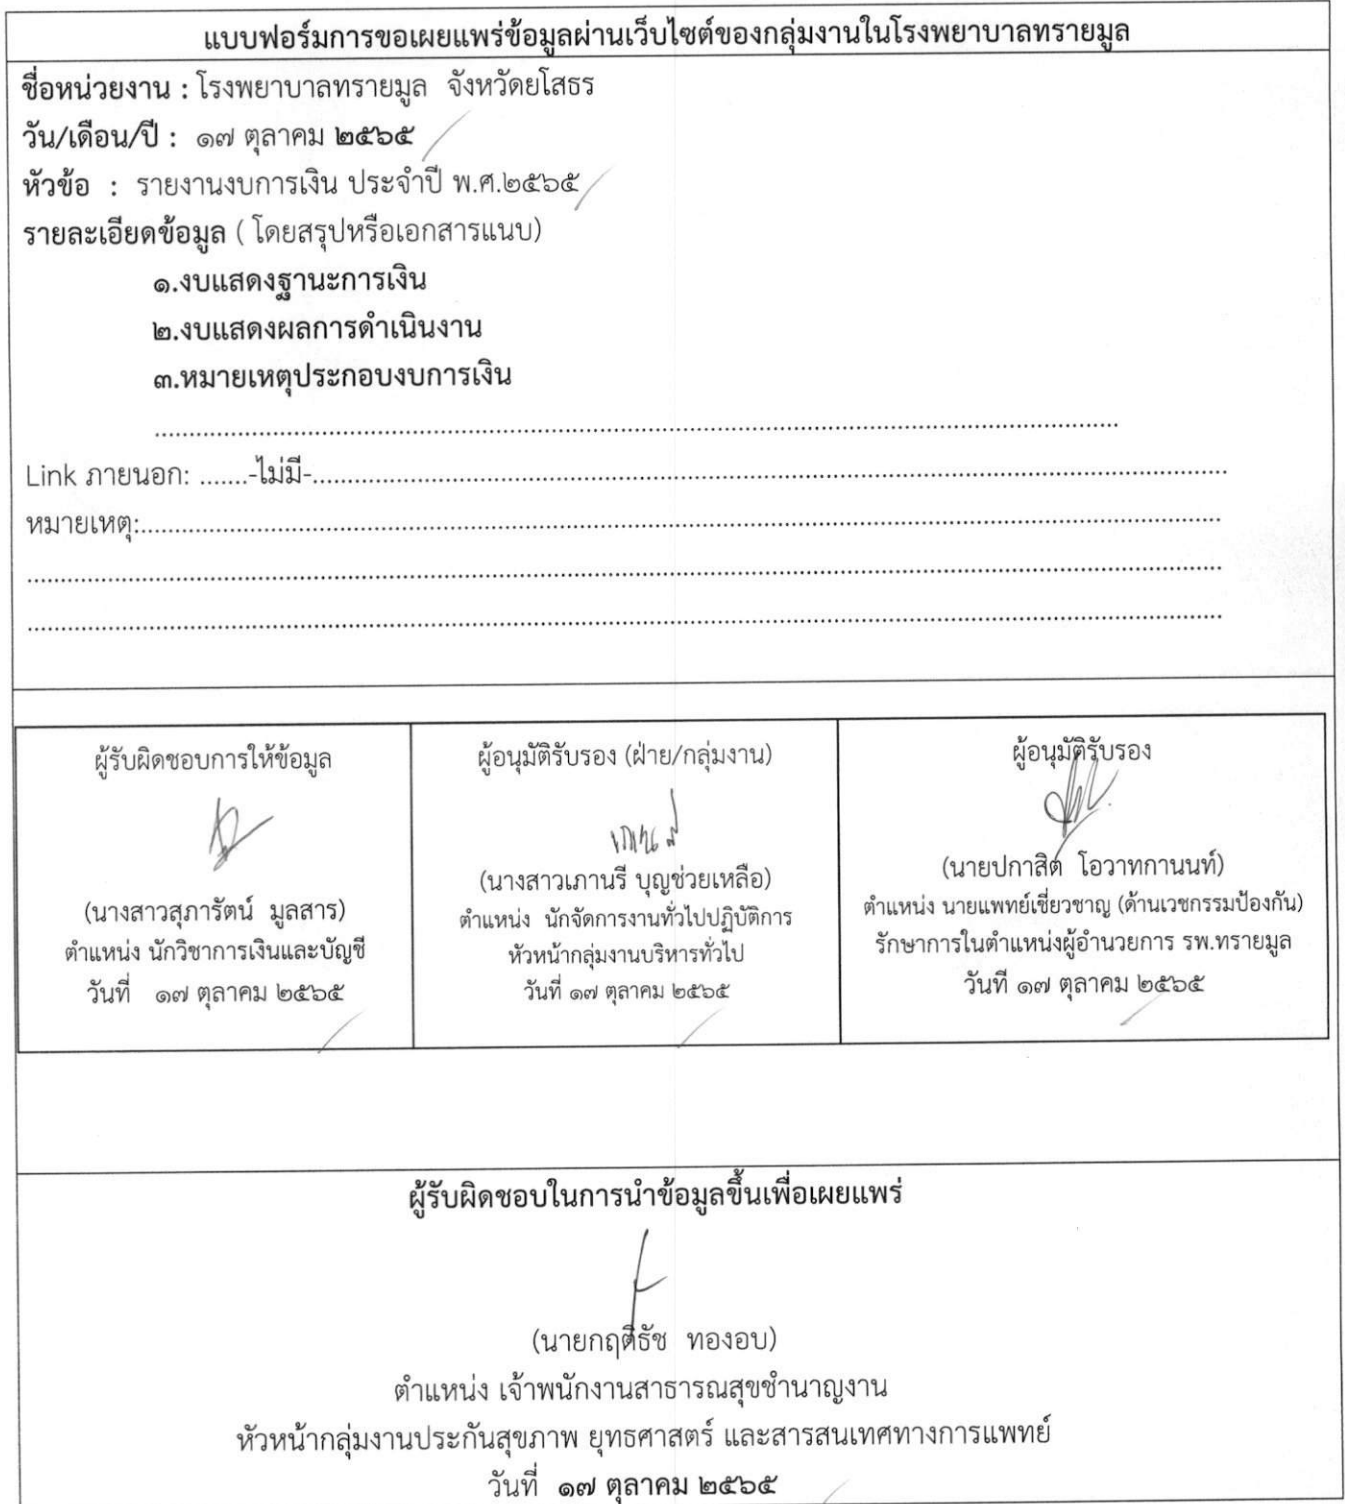 แบบฟอร์มการขอเผยแพร่ข้อมูลผ่านเว็บไซต์ของกลุ่มงานในโรงพยาบาลทรายมูล
ชื่อหน่วยงาน : โรงพยาบาลทรายมูล จังหวัดยโสธร
วัน/เดือน/ปี : ๑๗ ตุลาคม ๒๕๖๕
หัวข้อ : รายงานงบการเงิน ประจำปี พ.ศ.๒๕๖๕
รายละเอียดข้อมูล ( โดยสรุปหรือเอกสารแนบ)
๑.งบแสดงฐานะการเงิน
๒.งบแสดงผลการดำเนินงาน
๓.หมายเหตุประกอบงบการเงิน
Link ภายนอก: .......-ไม่มี-.......
หมายเหตุ:.......
ผู้รับผิดชอบการให้ข้อมูล
(นางสาวสุภารัตน์ มูลสาร)
ตำแหน่ง นักวิชาการเงินและบัญชี
วันที่ ๑๗ ตุลาคม ๒๕๖๕
ผู้อนุมัติรับรอง (ฝ่าย/กลุ่มงาน)
(นางสาวเภานรี บุญช่วยเหลือ)
ตำแหน่ง นักจัดการงานทั่วไปปฏิบัติการ
หัวหน้ากลุ่มงานบริหารทั่วไป
วันที่ ๑๗ ตุลาคม ๒๕๖๕
ผู้อนุมัติรับรอง
(นายปกาสิต โอวาทกานนท์)
ตำแหน่ง นายแพทย์เชี่ยวชาญ (ด้านเวชกรรมป้องกัน)
รักษาการในตำแหน่งผู้อำนวยการ รพ.ทรายมูล
วันที่ ๑๗ ตุลาคม ๒๕๖๕
ผู้รับผิดชอบในการนำข้อมูลขึ้นเพื่อเผยแพร่
(นายกฤติธัช ทองอบ)
ตำแหน่ง เจ้าพนักงานสาธารณสุขชำนาญงาน
หัวหน้ากลุ่มงานประกันสุขภาพ ยุทธศาสตร์ และสารสนเทศทางการแพทย์
วันที่ ๑๗ ตุลาคม ๒๕๖๕